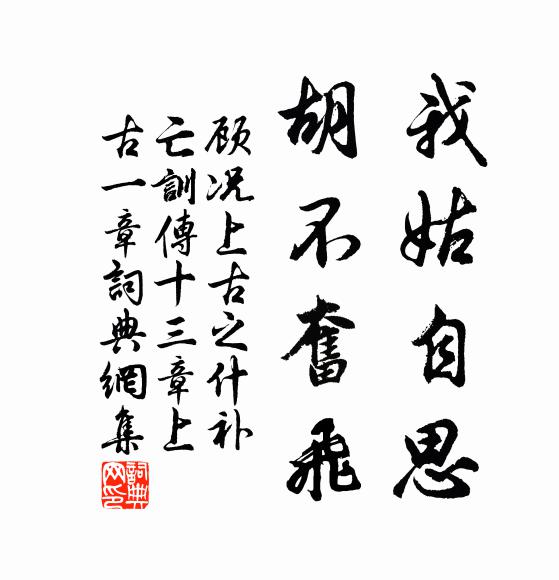 我姑自思
胡不奮飛
顾况上古之什补
亡訓傳十三章上
古一章詞典網集
詞典
网印